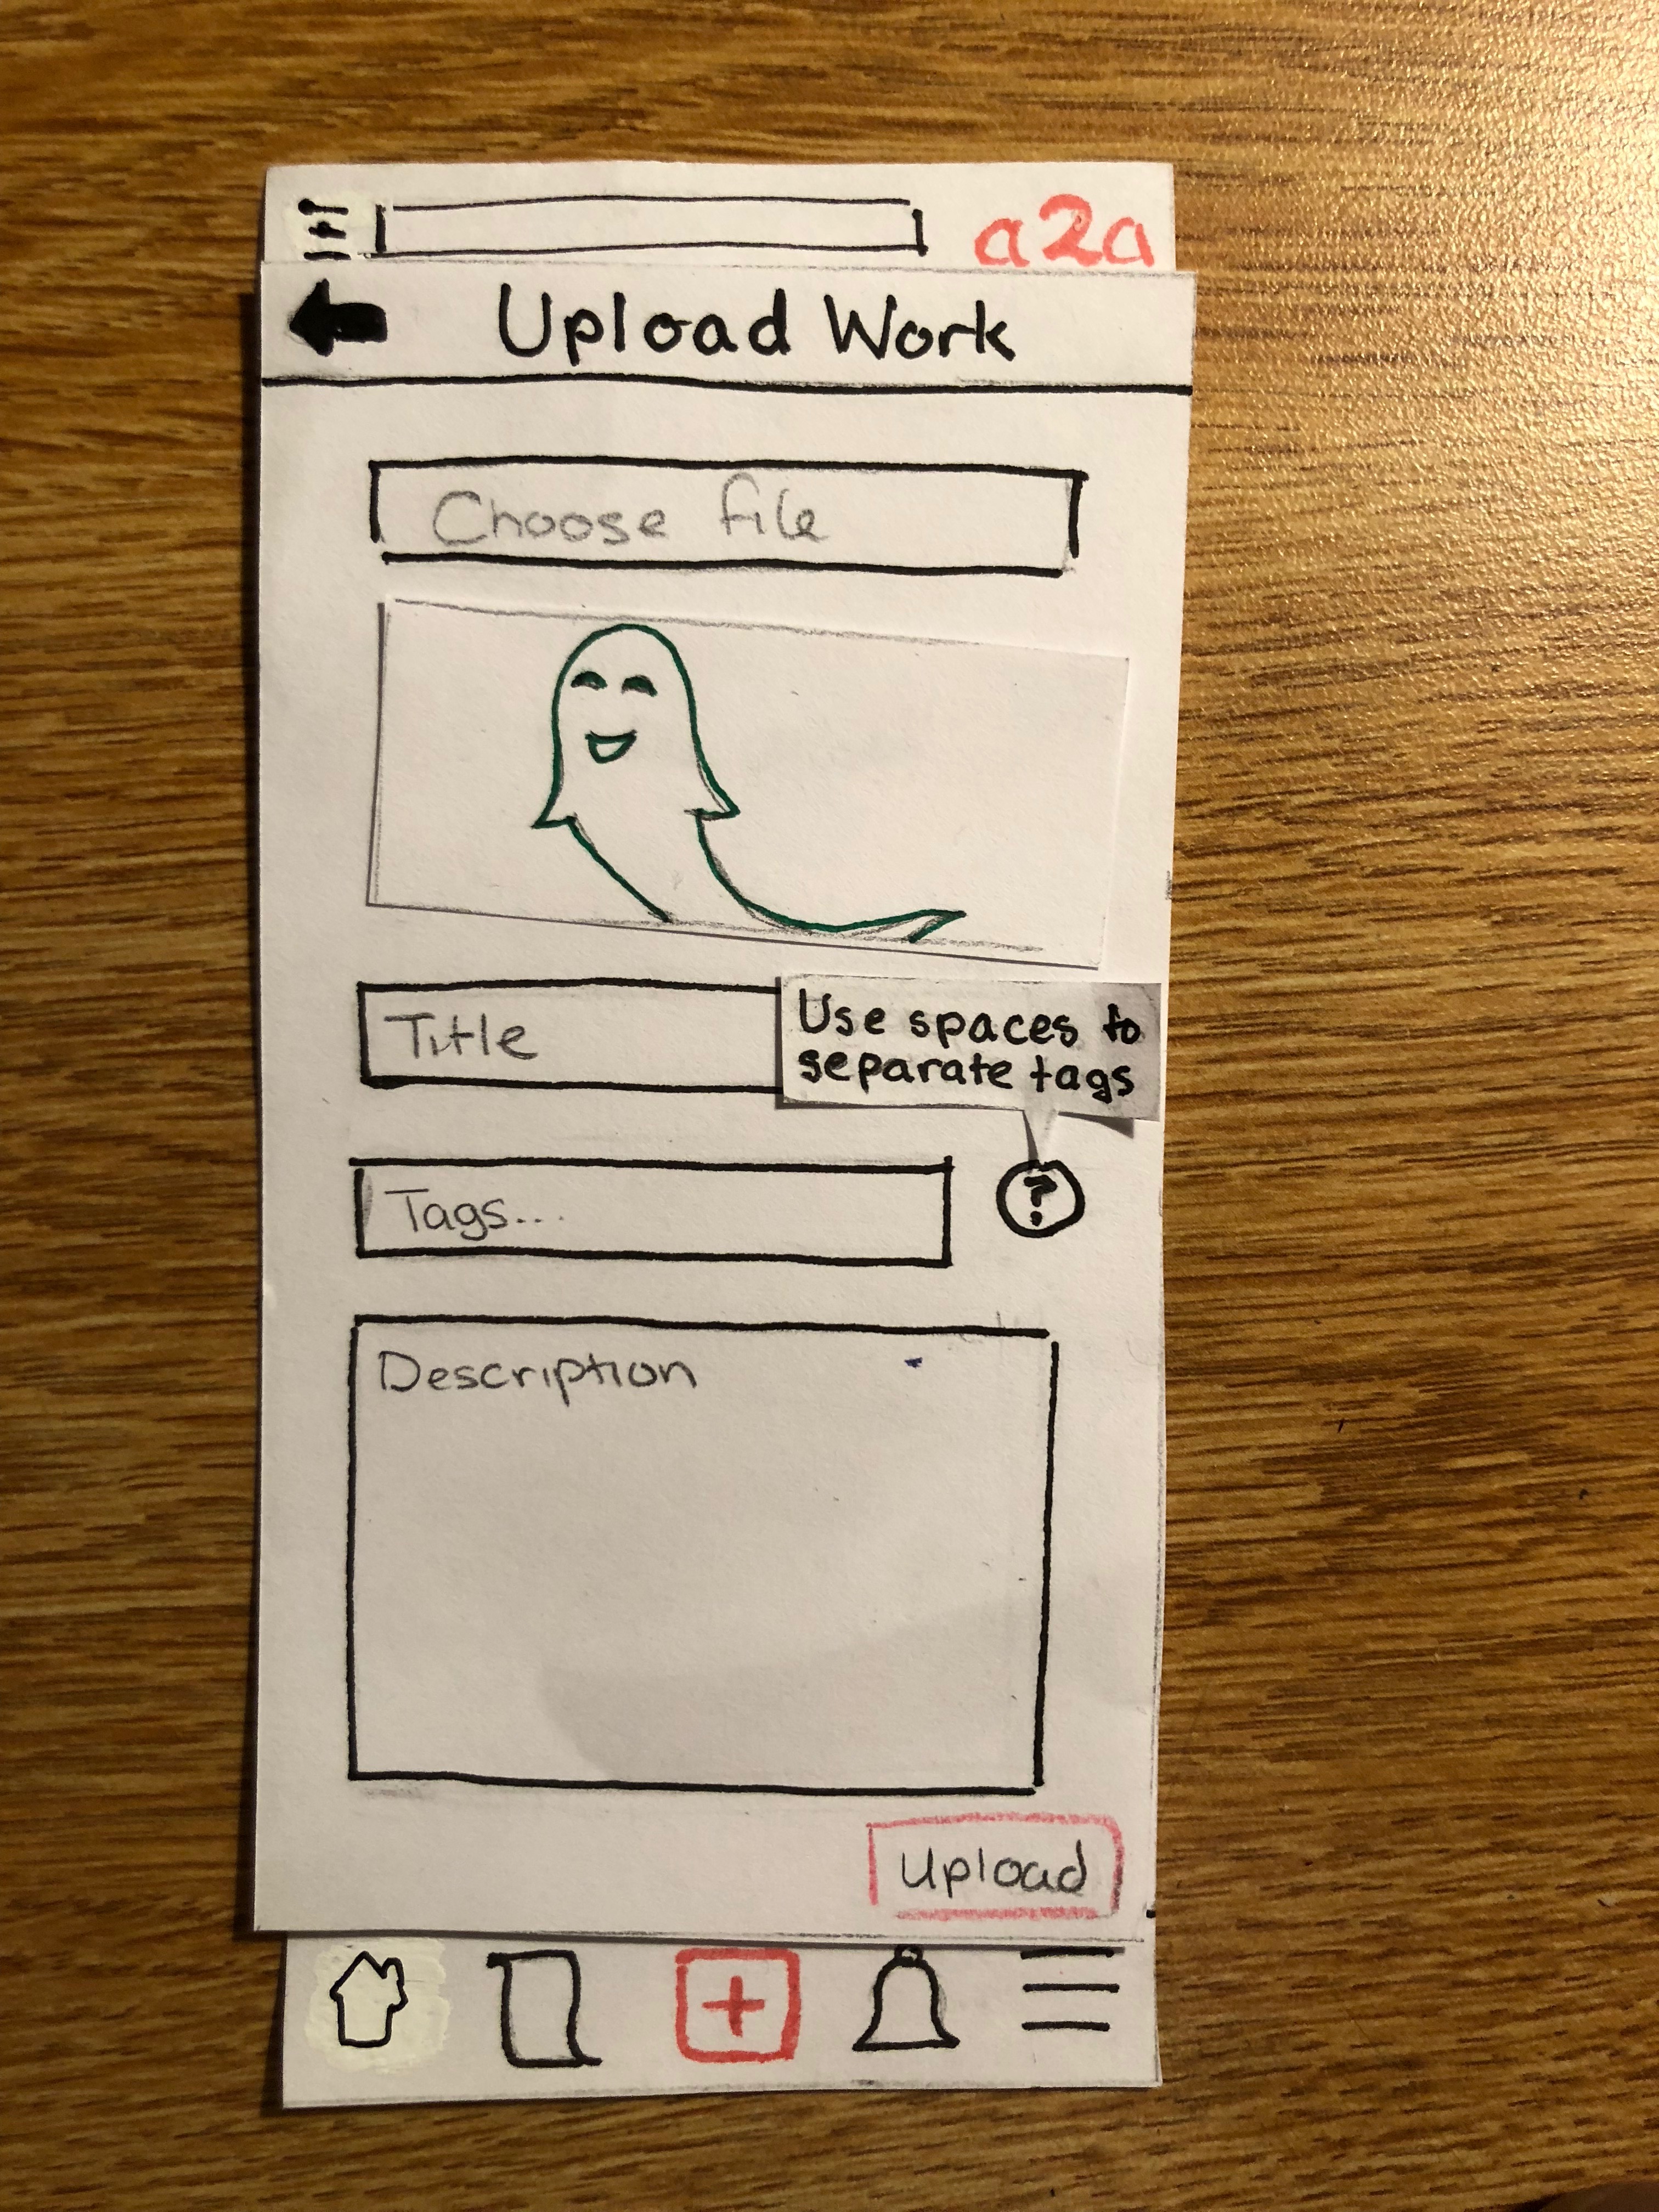 a2a
Upload Work
Choose file
Title
Use spaces to
separate tags
Tags...
?
Description
Upload